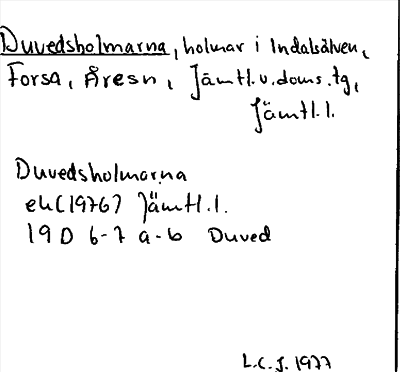 Duvedsholmarna, holmar i Indalsälven,
Forsa, Åresn, Jämtl.v.doms.tg,
Jämtl.l.
Duvedsholmarna
ek(1976) Jämtl.l.
19D 6-7 a-b Duved
L.C.J. 1977